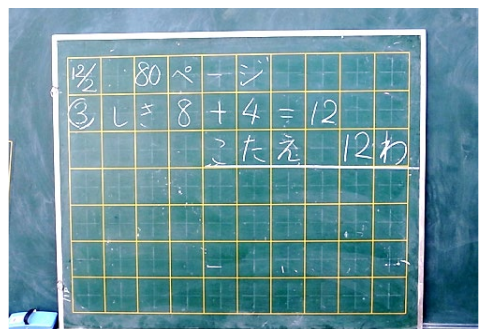 12/2 80ページ
③しき 8+4=12
こたえ 12わ